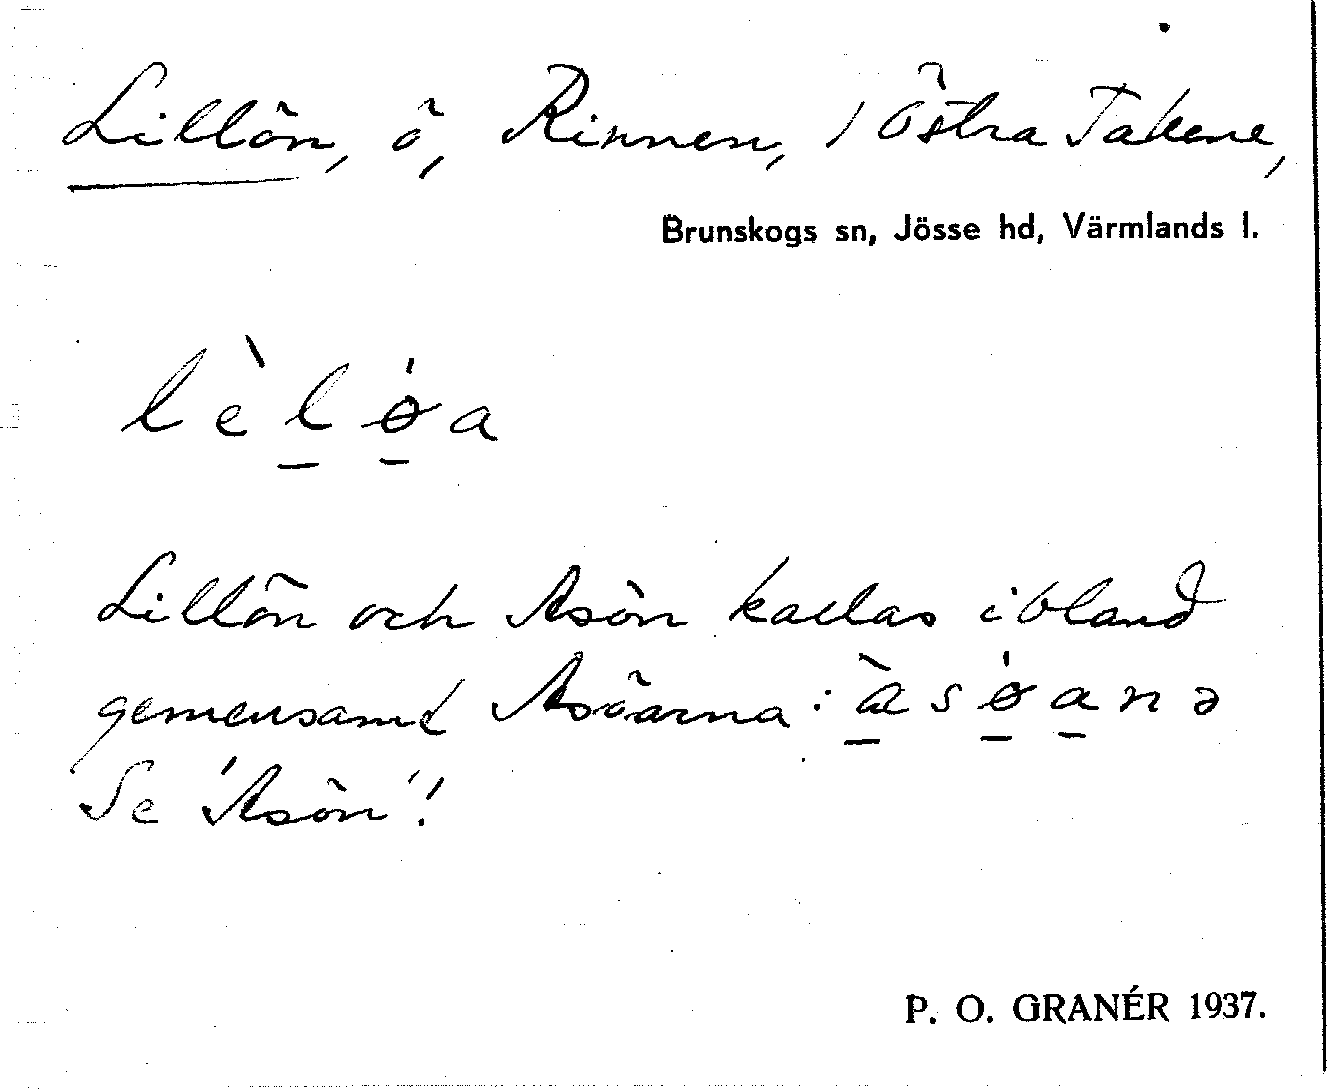 Lillön, ö, Rinnen, / Östra Takene,
Brunskogs sn, Jösse hd, Värmlands l.
lèl̲ǿ̲a
Lillön och Asön kallas ibland
gemensamt Asöarna: æ̲̀sǿ̲a̲nə
Se 'Asön'!
P. O. GRANÉR 1937.